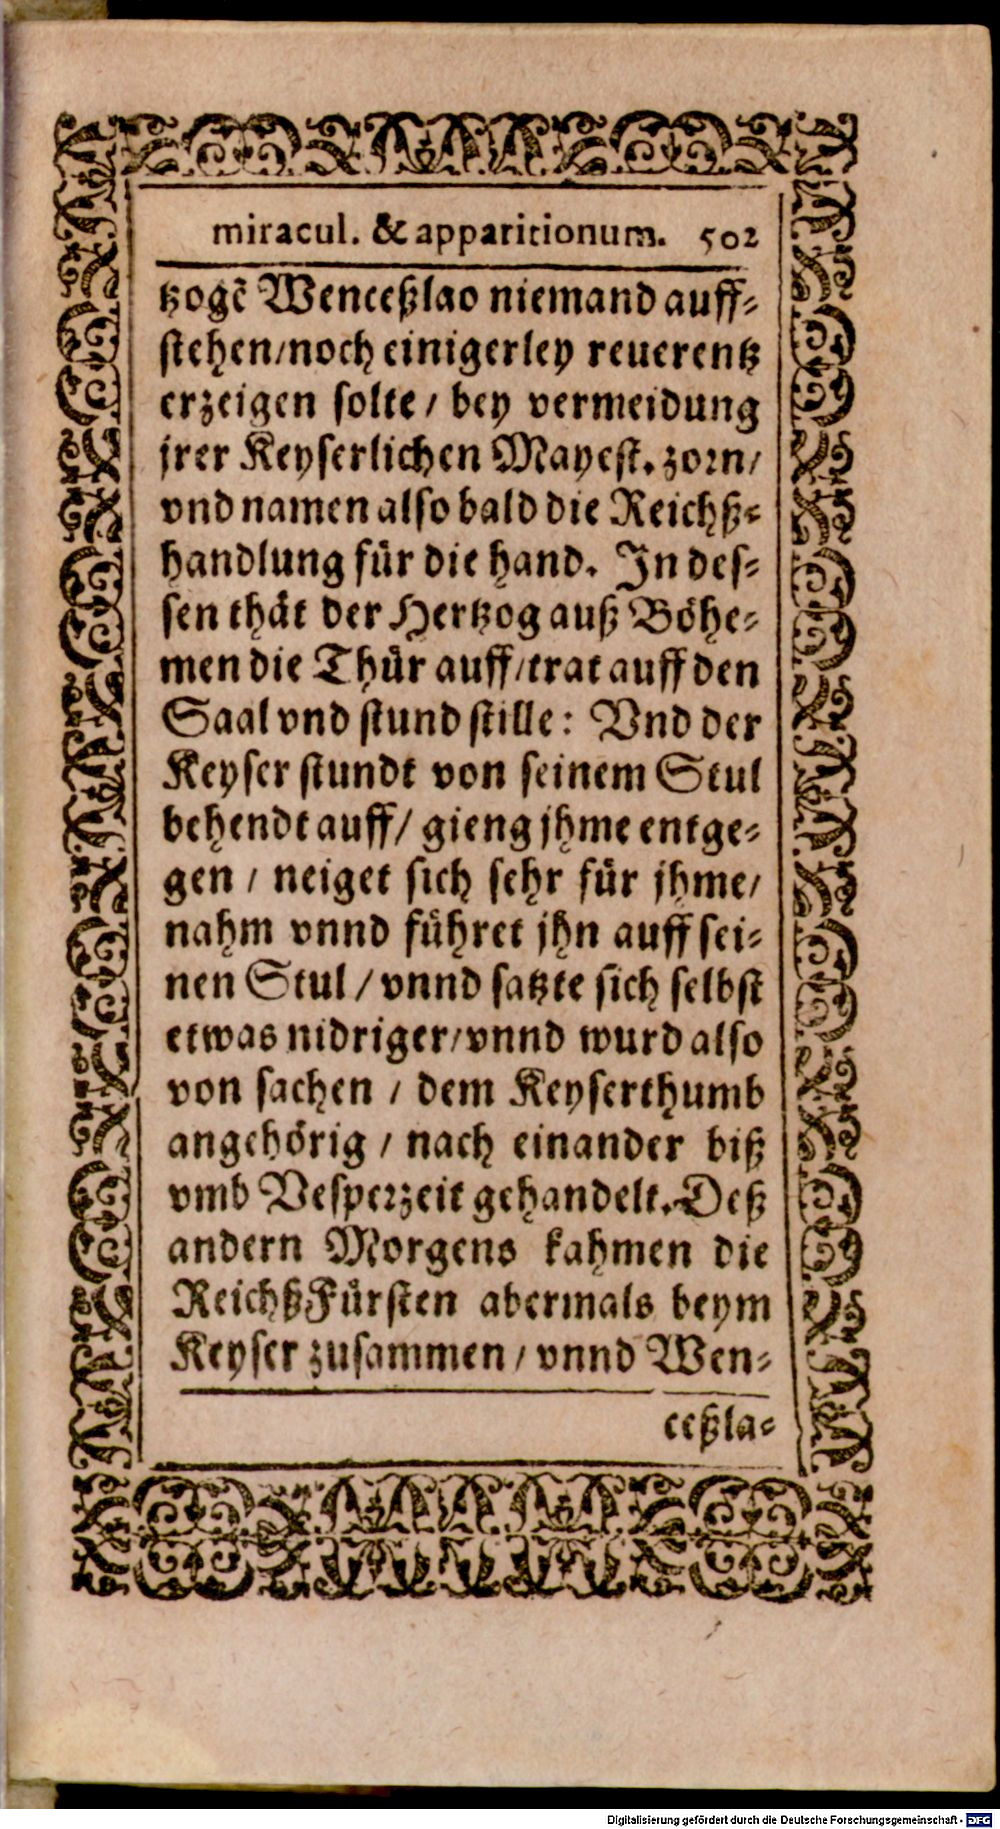 miracul. & apparitionum. 502
tzogẽ Wenceßlao niemand auff-
stehen/noch einigerley reuerentz
erzeigen solte / bey vermeidung
jrer Keyserlichen Mayest. zorn/
vnd namen also bald die Reichß-
handlung für die hand. In des-
sen thät der Hertzog auß Böhe-
men die Thür auff/trat auff den
Saal vnd stund stille: Vnd der
Keyser stundt von seinem Stul
behendt auff/ gieng jhme entge-
gen / neiget sich sehr für jhme/
nahm vnnd führet jhn auff sei-
nen Stul / vnnd satzte sich selbst
etwas nidriger/vnnd wurd also
von sachen / dem Keyserthumb
angehörig / nach einander biß
vmb Vesperzeit gehandelt. Deß
andern Morgens kahmen die
ReichßFürsten abermals beym
Keyser zusammen / vnnd Wen-
ceßla-
Digitalisierung gefördert durch die Deutsche Forschungsgemeinschaft - DFG